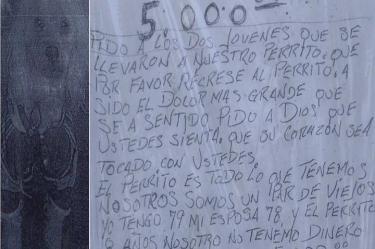 5.000.00
PIDO A LOS DOS JOVENES QUE SE
LLEVARON A NUESTRO PERRITO, QUE
POR FAVOR RECRESE AL PERRITO, A
SIDO EL DOLOR MAS GRANDE QUE
SE A SENTIDO PIDO A DIOS QUE
USTEDES SIENTA, QUE SU CORAZÓN SEA
TOCADO CON USTEDES.
EL PERRITO ES TODO LO QUE TENEMOS
NOSOTROS SOMOS UN PAR DE VIEJOS
YO TENGO 79 MI ESPOSA 78 Y EL PERRITO
AÑOS NOSOTRO NO TENEMO DINERO